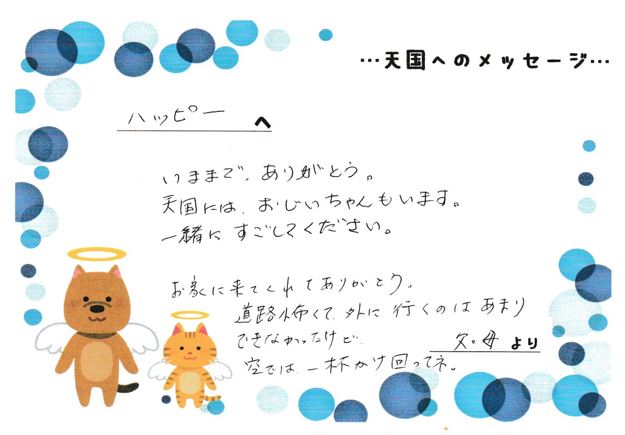 …天国へのメッセージ…
ハッピー へ
いままで、ありがとう。
天国には、おじいちゃんもいます。
一緒に すごしてください。
お家に来てくれてありがとう。
道路怖くて、外に 行くのは あまり
できなかったけど、
空では 一杯かけ回ってネ。
父・母 より